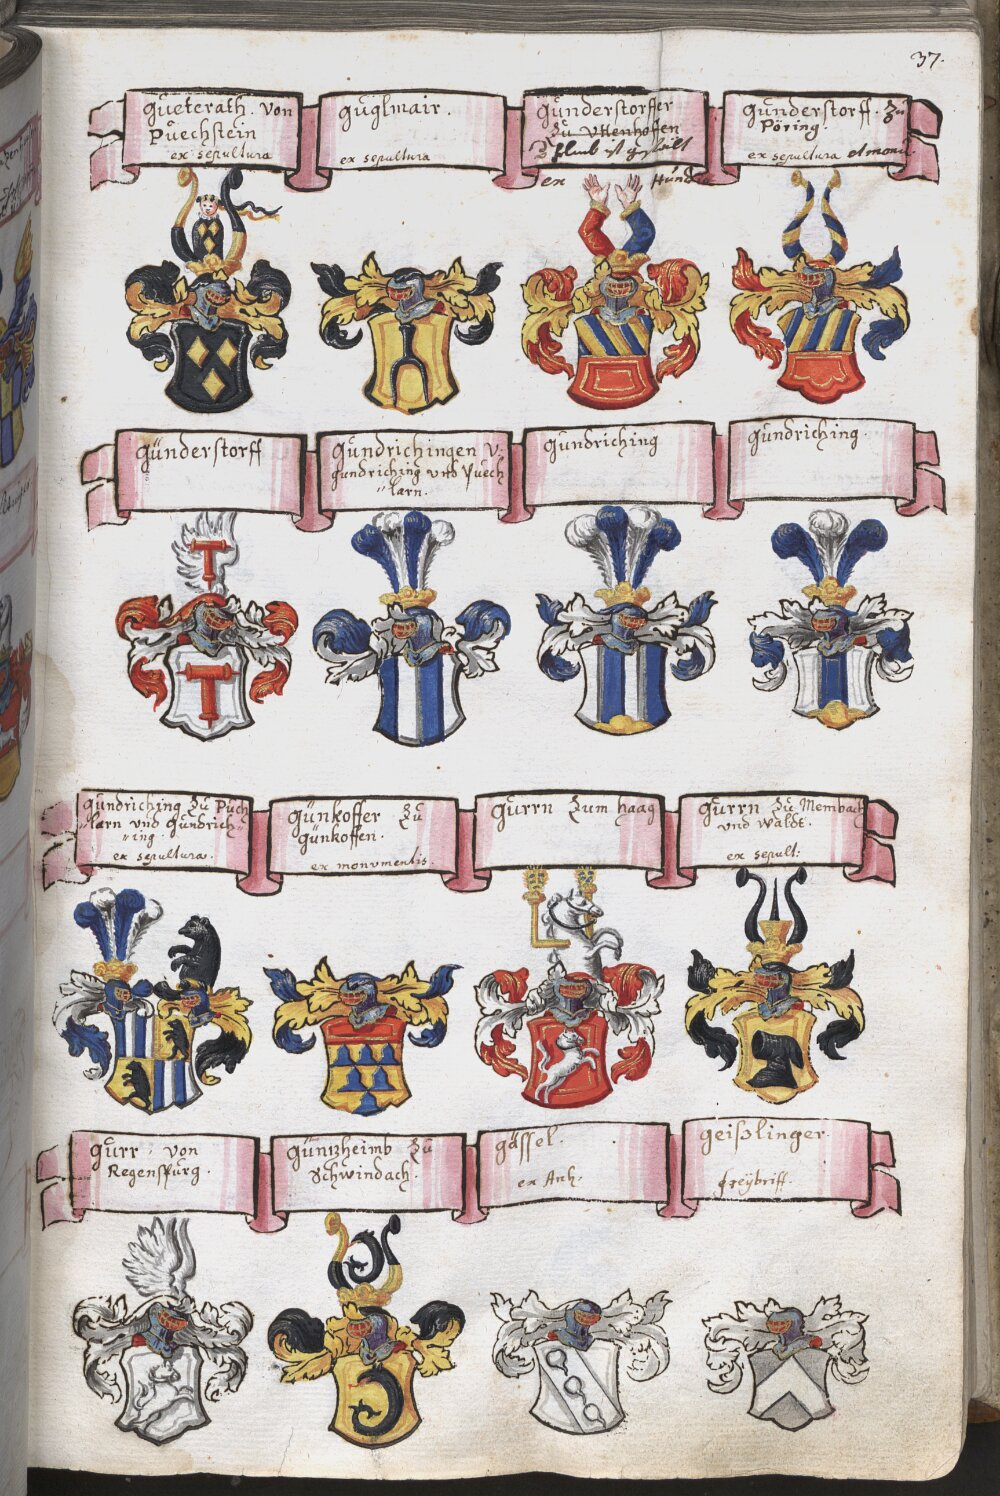 37.
Güeterath. von
Püechstein
ex sepultura
Güglmair.
ex sepultura
Günderstorffer
zu Vttenhofen
ex Hund
Günderstorff. Zu
Pöring.
ex sepultura et monu.
Günderstorff
Gündrichingen v.
gundriching vnd Puech
"larn.
Gündriching
Gündriching.
Gündriching Zu Püch
"larn vnd Gündrich"
"ing.
ex sepultura.
Günkoffer Zu
Günkoffen.
ex monumentis.
Gurrn Zum haag
Gurrn Zu Membach
vnd Waldt.
ex sepult:
Gurr von
Regenspurg.
Güntzheimb Zu
Schwindach.
Gässel.
ex Anh.
Geißlinger.
freÿbrieff.